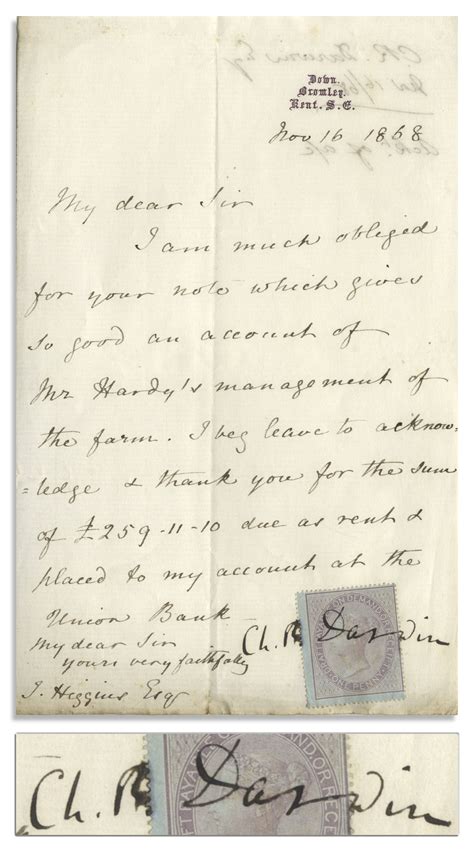 Down.
Bromley.
Kent. S.E.
Nov 16 1868
My dear Sir
I am much obliged
for your note which gives
so good an account of
Mr Hardy's management of
the farm. I beg leave to acknow-
=ledge & thank you for the sum
of £259-11-10 due as rent &
placed to my account at the
Union Bank
My dear Sir
yours very faithfully
Ch. R. Darwin
J. Higgins Esqr
ONE PENNY
Ch. R. Darwin